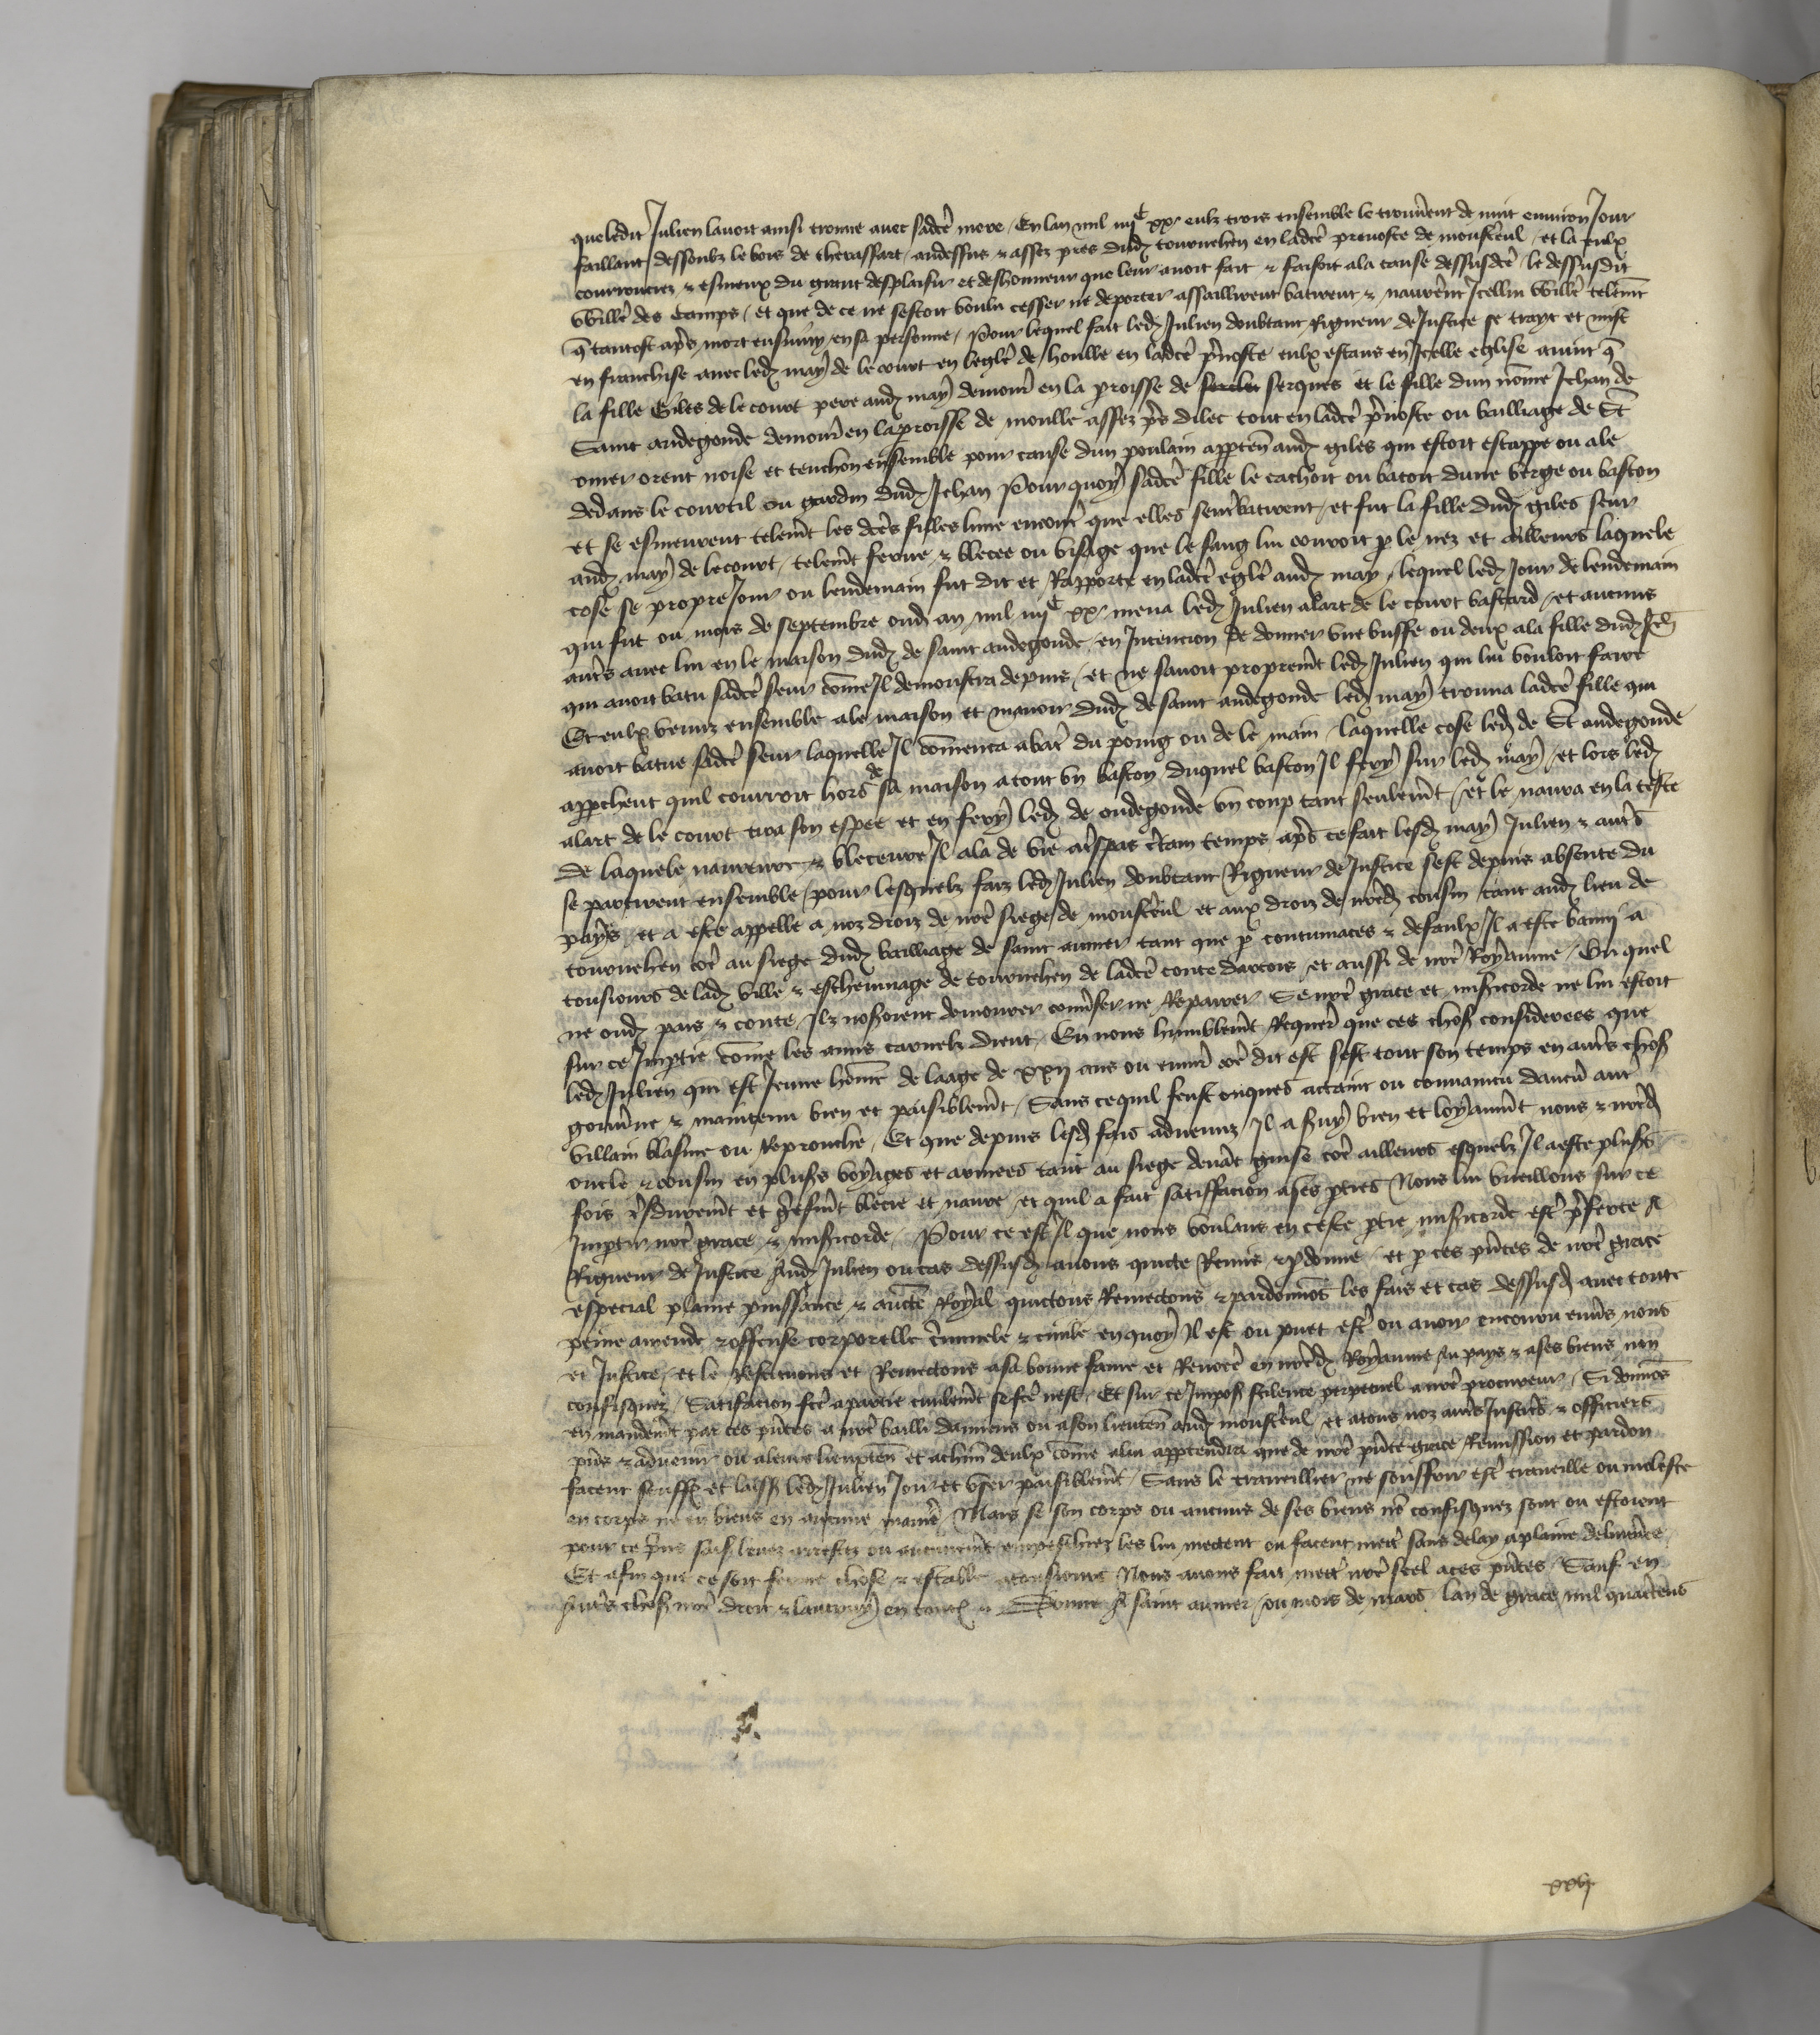 que ledit Julien lavoit ainsi trouve avec sadce mere / En lan mil iiijC xx eulz trois ensemble le trouverent de nuit environ Jour
faillant dessoubz le bois de therassart / audessus & assez pres dud tournehen en ladce prevoste de monstreul / et la eulx
courrouciez & esmeux du grant desplaisir et deshonneur que leur avoit fait & faisoit ala cause dessusdce / le dessusdit
Wille des Camps / et que de ce ne sestoit voulu cesser ne deporter assaillirent batirent & navrerent Jcellui Wille telemt
q tantost apres mort ensuivy en sa personne / Pour lequel fait led Julien doubtant Rigueur de Justice se trayt et mist
en franchise avec led may de le court en leglē de houlle en ladce pvoste eulx estans en Jcelle eglise avint q
la fille Giles de le court pere aud may demour en la proisse de serques et le fille dun nōme Jehan de
Saint audegonde demour en la proisse de moulle assez pres dilec tout en ladce pvoste ou bailliage de St
omer orent noise et tenchon ensemble pour cause dun poulain apptenant aud giles qui estoit escappe ou ale
dedans le courtil ou gardin dud Jehan Pour quoy sadce fille le cachoit ou batoit dune verge ou baston
et se esmeurent telemt les dces filles lune encontre que elles sentrebatirent / et fut la fille dud giles seur
aud may de lecourt / telemt ferue & blecee ou visage que le sang lui couroit p le nez et ailleurs laquele
cose se propre Jour ou lendemain fut dit et Rapporte en ladce eglē aud may / lequel led Jour de lendemain
qui fut ou mois de septembre oud an mil iiijC xx mena led Julien alart de le court bastard / et aucuns
autres avec lui en le maison dud de saint audegonde / en Jntencion de donner une buffe ou deux ala fille dud Jeh
qui avoit batu sadce seur cōme Jl demonstra depuis / et ne savoit propremt led Julien qui lui vouloit faire
Et eulx venuz ensemble ale maison et manoir dud de saint audegonde led may trouva ladce fille qui
avoit batue sadce seur laquelle Jl cōmenca a batre du poing ou de le main / laquelle cose led de St audegonde
appchent quil couroit hors de sa maison atout un baston duquel baston Jl fery sur led may / et lors led
alart de le court tira son espee et en fery led de audegonde un coup tant seulemt / et le navra en la teste
De laquele navreure & bleceure Jl ala de vie atrespas certain temps apres ce fait lesd may Julien & autres
se partirent ensemble / pour lesquelz faiz led Julien doubtant Rigueur de Justice sest depuis absente du
pays / et a este appelle a noz droiz de nre siege de monstreul et aux droiz de nred cousin tant aud lieu de
tournehen cōe au siege dud bailliage de saint aumer tant que p contumaces & defaulx Jl a este banni a
tousjours de lad ville & eschevinage de tournehen de ladce conte dartois / et aussi de nre Royaume / Ou quel
ne oud pais & conte / Jlz noseroient demourer converser ne Reparer Se nre grace et misericorde ne lui estoit
sur ce Jmptie cōme les amis carnelz dient / En nous humblemt Requer que ces choses considerees que
led Julien qui est Jeune hōme de laage de xxij ans ou environ cōe dit est sest tout son temps en autres choses
gouverne & maintenu bien et paisiblemt / Sans ce quil feust onques actaint ou convaincu daucun autre
villain blasme ou Reprouche / Et que depuis lesd fais advenuz / Jl a servy bien et loyaumt nous & nred
oncle & cousin en plusrs voyages et armees tant au siege devant guise cōe ailleurs esquelz Jl a este plusrs
fois et griefmt blecie et navre / et quil a fait satiffacion ases pties Nous lui vueillons sur ce
Jmptir nre grace & misericorde / Pour ce est Jl que nous voulans en ceste ptie misericorde estre pferee a
Rigueur de Justice Aud Julien ou cas dessusd avons quicte Remis & pdonne / et p ces pntes de nre grace
especial plaine puissance & aucte Royal quictons Remectons & pardonnōs les fais et cas dessusd avec toute
peine amende & offense corporelle criminele & civile en quoy Jl est ou puet estre ou avoir encouru envrs nous
et Justice / et le Restituons et Remectons a sa bonne fame et Renōee en nred Royaume / au pays & ases biens non
confisquez / Satisfacion fce apartie civilemt se fce nest / Et sur ce Jmposs scilence perpetuel a nre procureur / Si donnōs
en mandemt par ces pntes a nre bailli damiens ou a son lieuten aud monstreul / et atous noz autres Justiciers & officiers
pns & advenir ou aleurs lieuxten et achūn deulx cōme alui apptendra que de nre pnte grace Remission et pardon
facent seuffr et laiss led Julien Joir et user paisiblemt / Sans le traveillier ne souffrir estre traveille ou moleste
en corps ne en biens en aucune maniere / Mais se son corps ou aucuns de ses biens nō confisquez sont ou estoient
pour ce pns sais levez arrestez ou aucunemt empeschiez les lui mectent ou facent mectre sans delay aplaine delivrance
Et afin que ce soit ferme chose & estable atousjours Nous avons fait mectre nre scel aces pntes / Sauf en
autres choses nre droit & lautruy en toutes / Donne a saint aumer / ou mois de mars lan de grace mil quatrecens
xxvj